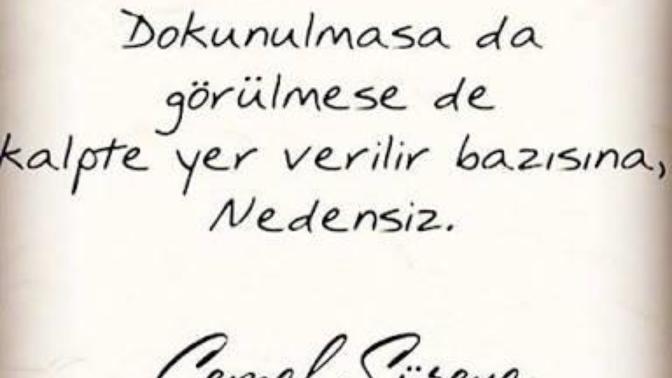 Dokunulmasa da
görülmese de
kalpte yer verilir bazısına,
Nedensiz.
Cemal Süreya